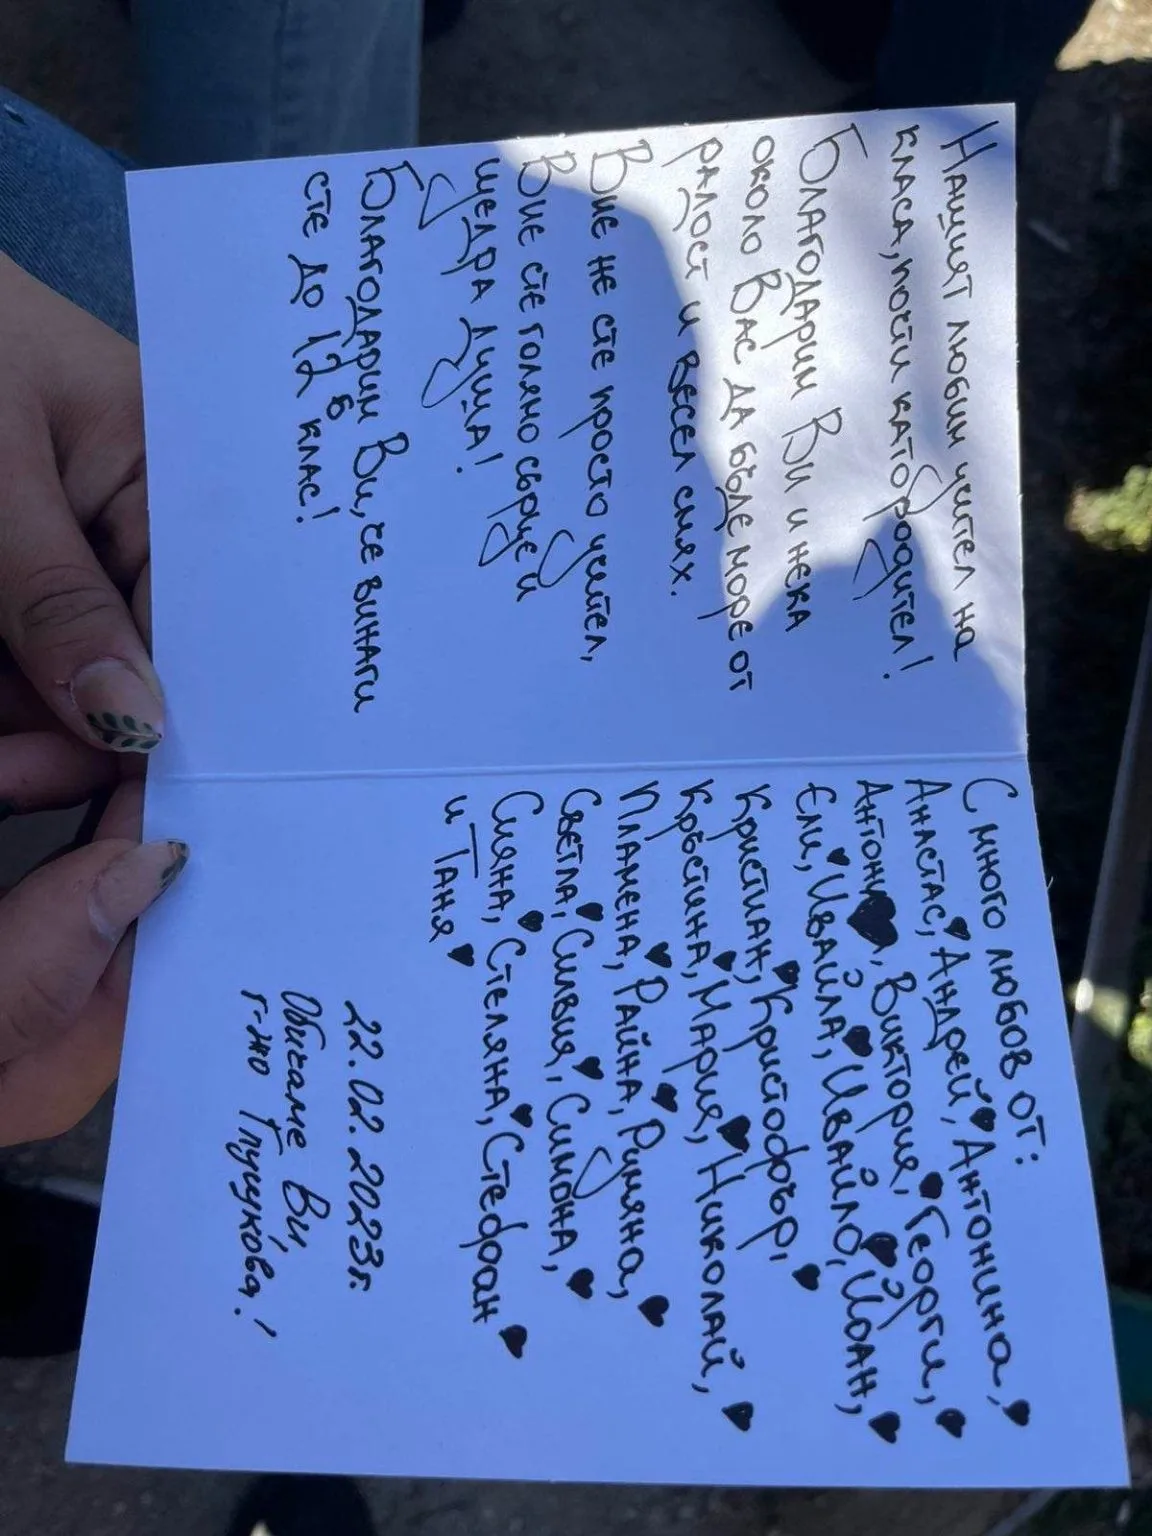 Нашият любим учител на
класа, почти като родител!
Благодарим Ви и нека
около Вас да бъде море от
радост и весел смях.
Вие не сте просто учител,
Вие сте голямо сърце и
щедра душа!
Благодарим Ви, че винаги
сте до 12б клас!
С много любов от:
Анастас, Андрей, Антонина,
Антония, Виктория, Георги,
Ели, Ивайла, Ивайло, Йоан,
Кристиан, Кристофър,
Кръстина, Мария, Николай,
Пламена, Райна, Румяна,
Светла, Силвия, Симона,
Сияна, Стеляна, Стефан
и Таня
22.02.2023г.
Обичаме Ви
г-жо Глушкова!